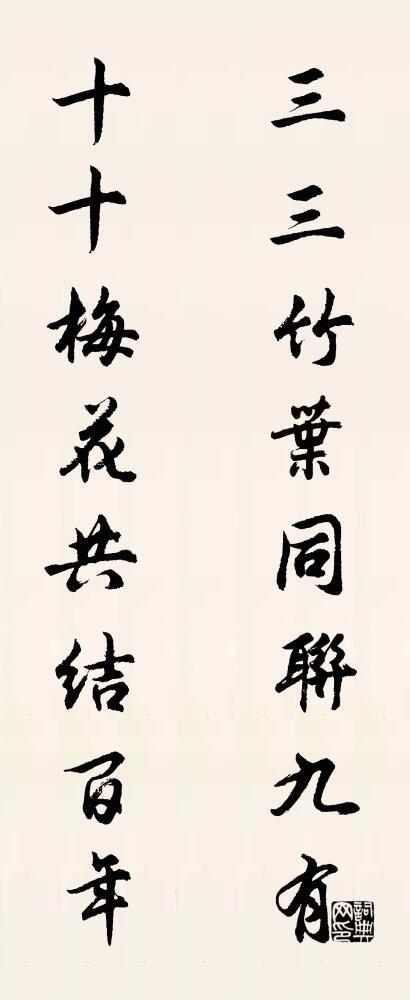 三三竹葉同聯九有
十十梅花共结百年
詞典網印